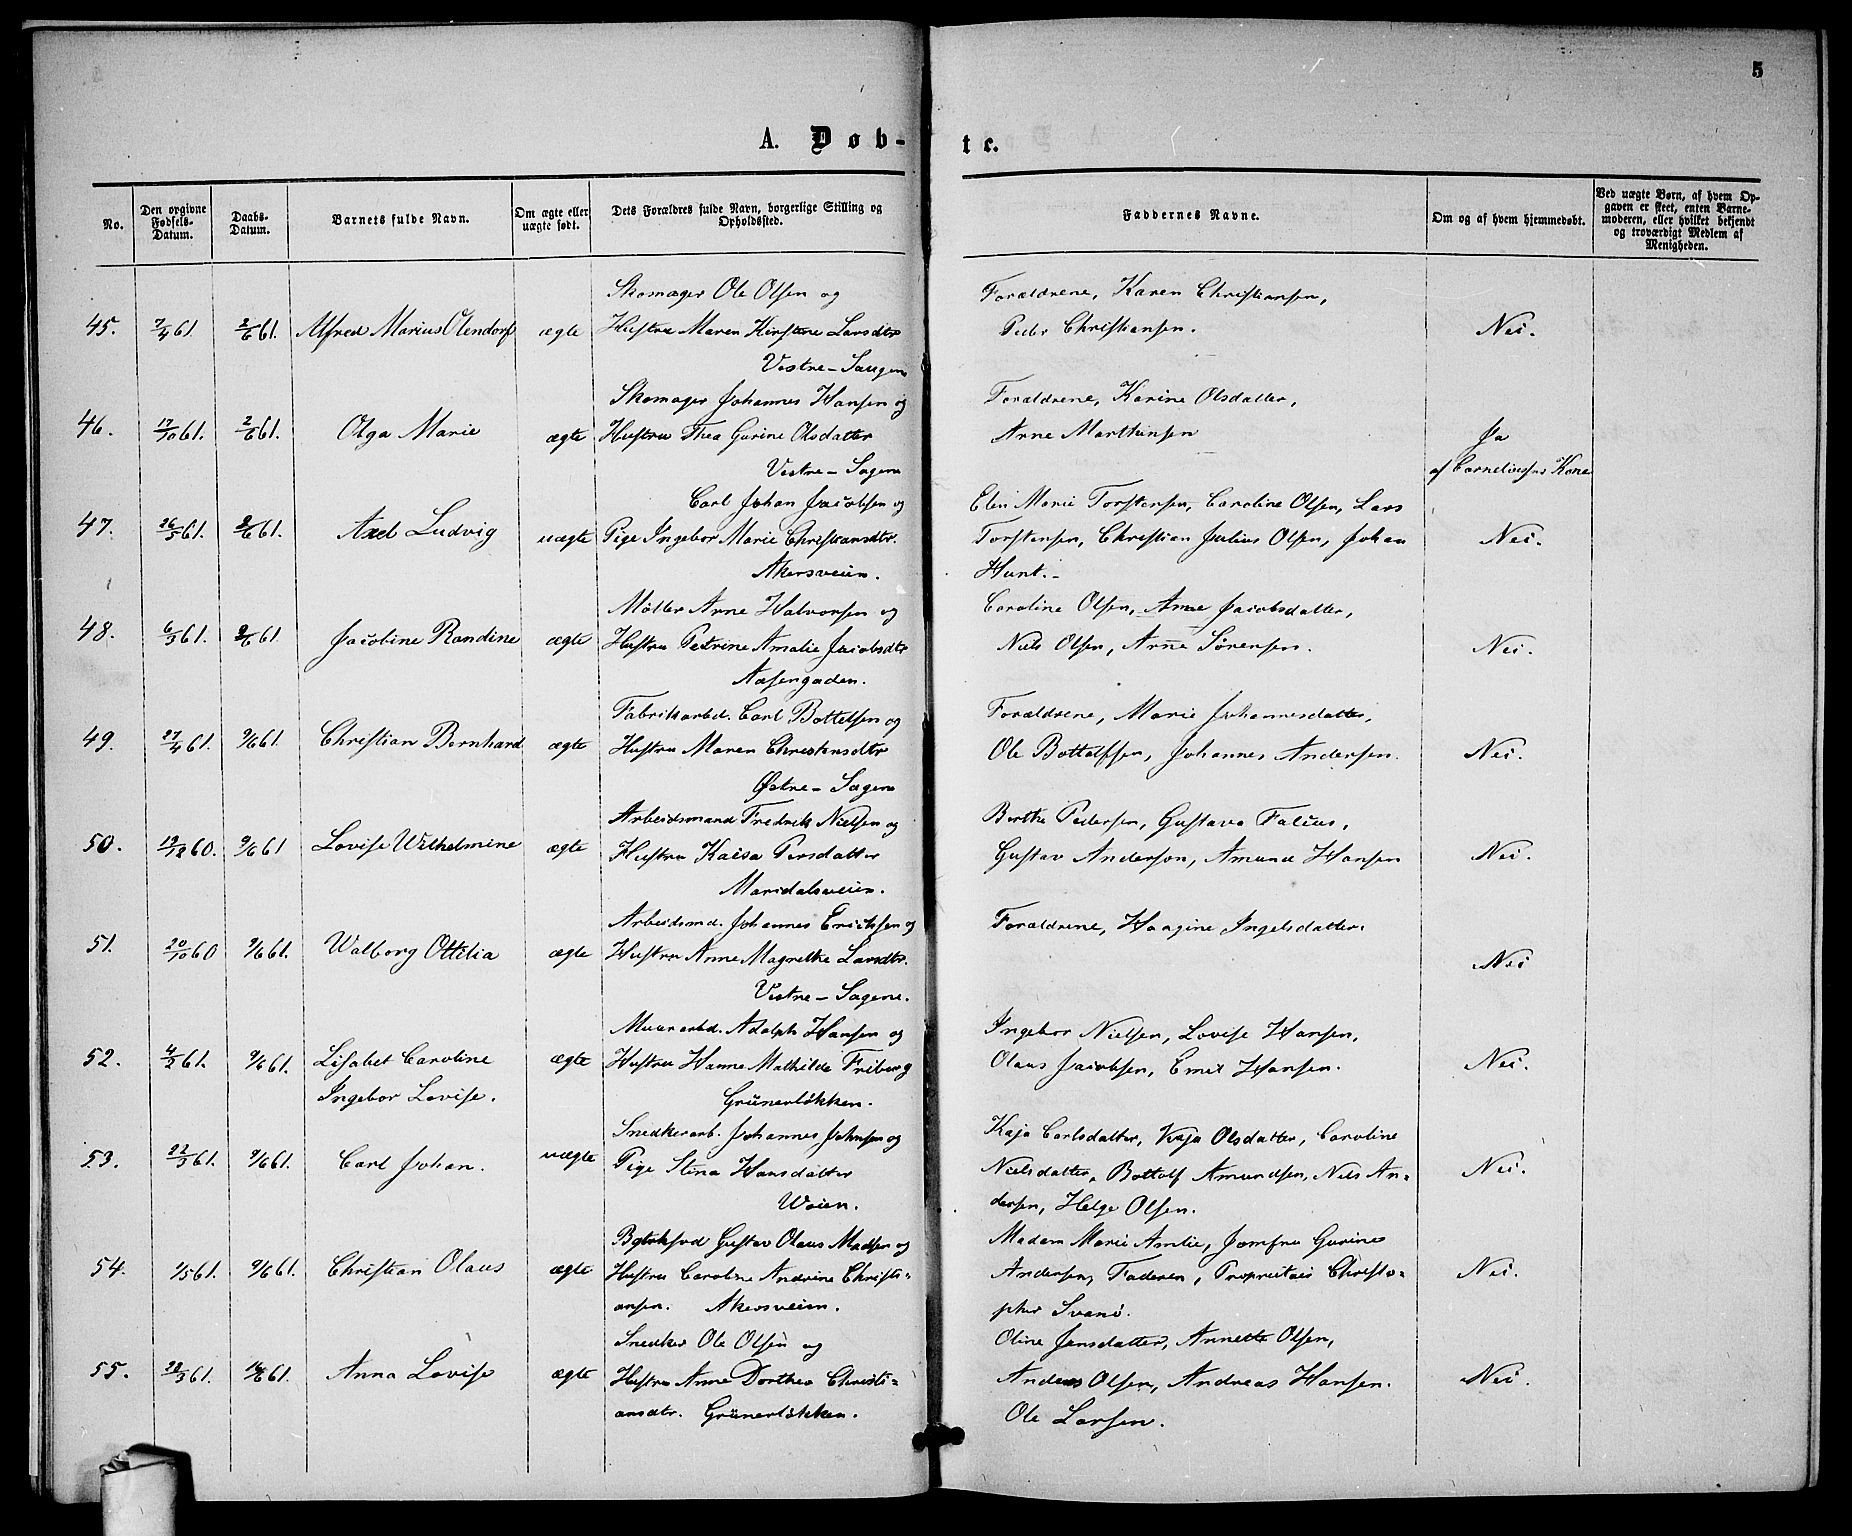 5
A. Døb-
te.
No.
Den opgivne Fødsels-Datum.
Daabs-Datum.
Barnets fulde Navn.
Om ægte eller uægte født.
Dets Forældres fulde Navn, borgerlige Stilling og Opholdssted.
Faddernes Navne.
Om og af hvem hjemmedøbt.
Ved uægte Børn, af hvem Opgaven er skeet, enten Barnemoderen, eller hvilket bekjendt og troværdigt Medlem af Menigheden.
Skomager Ole Olsen og
Forældrene, Karen Christiansen,
45. 7/4 61. 2/6 61. Alfred Marius Olendorf ægte Hustru Maren Kirstine Larsdtr Peder Christiansen. Nei.
Vestre-Saugene
Skomager Johannes Hansen og
Forældrene, Karine Olsdatter,
46. 17/10 61. 2/6 61. Olga Marie ægte Hustru Thea Gurine Olsdatter Arne Marthinsen Ja
Vestre-Sagene
af Corneliussens Kone
Carl Johan Jacobsen og
Elen Marie Torstensen, Caroline Olsen, Lars
47. 26/5 61. 2/6 61. Axel Ludvig uægte Pige Ingebor Marie Christiansdtr. Torstensen, Christian Julius Olsen, Johan Nei.
Akersveien.
Hunt.-
Møller Arne Halvorsen og
Caroline Olsen, Anne Jacobsdatter,
48. 6/3 61. 2/6 61. Jacobine Randine ægte Hustru Petrine Amalie Jacobsdtr Niels Olsen, Arne Sørensen. Nei.
Aasengaden.
Fabrikarbd. Carl Bottelsen og
Forældrene, Marie Johannesdatter,
49. 27/4 61. 9/6 61. Christian Bernhard ægte Hustru Maren Christensdtr Ole Bottolfsen, Johannes Andersen. Nei.
Østre-Sagene
Arbeidsmand Fredrik Nielsen og
Berthe Pedersen, Gustava Falius,
50. 19/12 60. 9/6 61 Lovise Wilhelmine ægte Hustru Kaisa Persdatter Gustav Anderson, Amund Hansen Nei.
Maridalsveien.
Arbeidsmd. Johannes Ericksen og
Forældrene, Haagine Ingelsdatter.
51. 20/10 60 9/6 61. Walborg Ottilia ægte Hustru Anne Magrethe Larsdtr. Nei
Vestre-Sagene.
Muurarbd. Adolph Hansen og
Ingebor Nielsen, Lovise Hansen,
52. 4/2 61. 9/6 61. Lisabet Caroline ægte Hustru Hanne Mathilde Friberg Olaus Jacobsen, Emil Hansen. Nei.
Ingebor Lovise. Grünerløkken.
Snedkerarb. Johannes Johnsen og
Kaja Carlsdatter, Kaja Olsdatter, Caroline
53. 22/3 61. 9/6 61. Carl Johan. uægte Pige Stina Hansdatter Nielsdatter, Bottolf Amundsen, Nils An= Nei.
Woien.
dersen, Helge Olsen.
Gustav Olaus Madsen og
Madam Marie Amlie, Jomfru Gurine
54. 1/5 61. 9/6 61. Christian Olaus ægte Hustru Caroline Andrine Christi= Andersen, Faderen, Proprietær Christo= Nei.
ansen. Akersveien.
pher Svanø.
Snedker Ole Olsen og
Oline Jensdatter, Annette Olsen,
55. 28/3 61. 16/6 61. Anna Lovise ægte Hustru Anne Dorthea Christi= Andreas Olsen, Andreas Hansen. Nei.
ansdtr. Grünerløkken.
Ole Larsen.